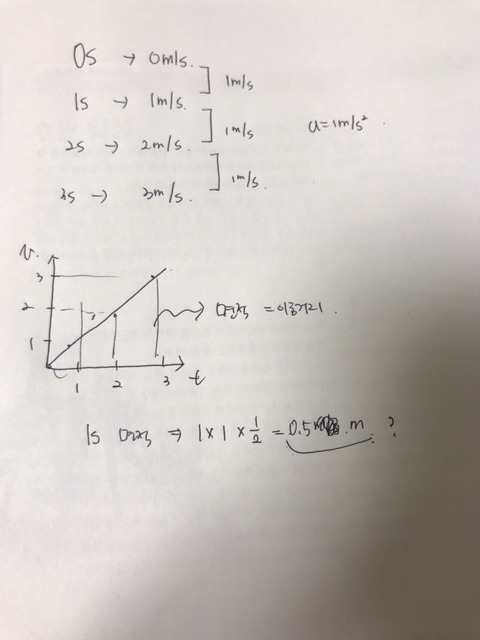 0s → 0m/s.
1m/s
1s → 1m/s.
1m/s
a=1m/s².
2s → 2m/s.
1m/s.
3s → 3m/s.
v.
3
2
1
1 2 3 t
면적 = 이동거리.
1s 면적 ⇒ 1×1×1/2 = 0.5 m. ?